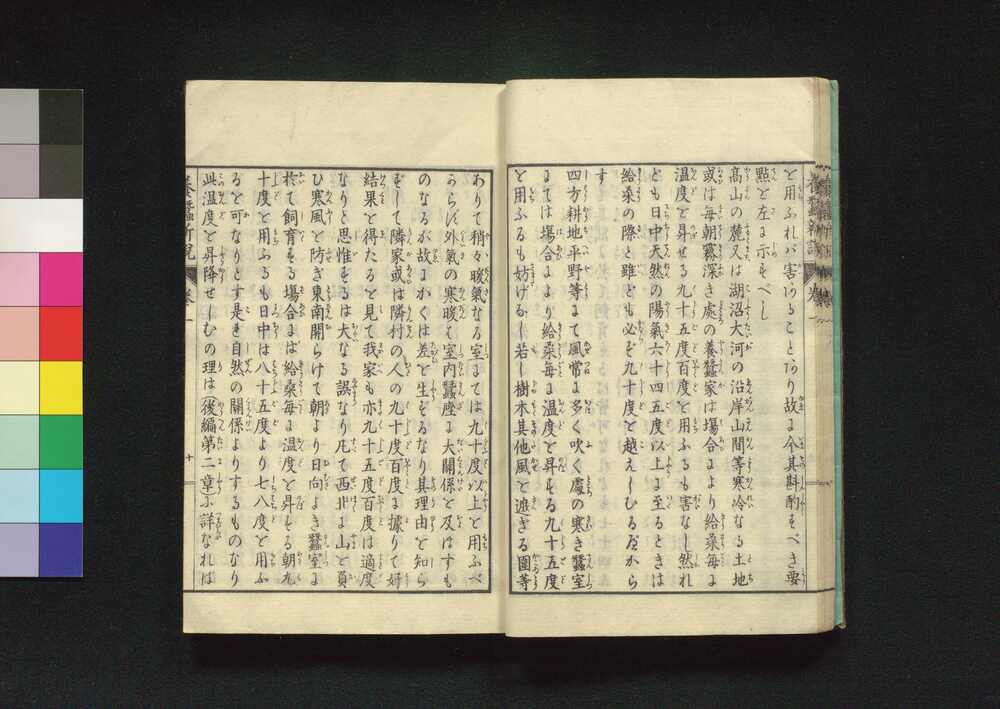 と用ふれバ害あることあり故に今其斟酌すべき要
點を左に示すべし
高山の麓又は湖沼大河の沿岸山間等寒冷なる土地
或は毎朝霧深き處の養蠶家は塲合により給桑毎に
温度を昇せる九十五度百度を用ふるも害なし然れ
とも日中天然の陽氣六十四五度以上に至るときは
給桑の際と雖ども必ず九十度を越えしむるべから
す
四方耕地平野等にて風常に多く吹く處の寒き蠶室
にては塲合により給桑毎に温度を昇する九十五度
を用ふるも妨げなし若し樹木其他風を遮ぎる圍等
ありて稍々暖氣なる室にては九十度以上を用ふべ
からず外氣の寒暖て室内蠶座に大關係を及はすも
のなるが故にかくは差を生ずるなり其理由を知ら
ずして隣家或は隣村の人の九十度百度に據りて好
結果を得たるを見て我家も亦九十五度百度は適度
なりと思惟するは大なる誤なり凡て西北に山を負
ひ寒風を防ぎ東南開らけて朝より日向よき蠶室に
於て飼育する塲合には給桑毎に温度を昇する朝九
十度を用ふるも日中は八十五度より七八度を用ふ
るを可なりとす是き自然の關係よりするものなり
此温度を昇降せしむの理は(後編第二章)に詳なれば
養蠶新説
卷一
十